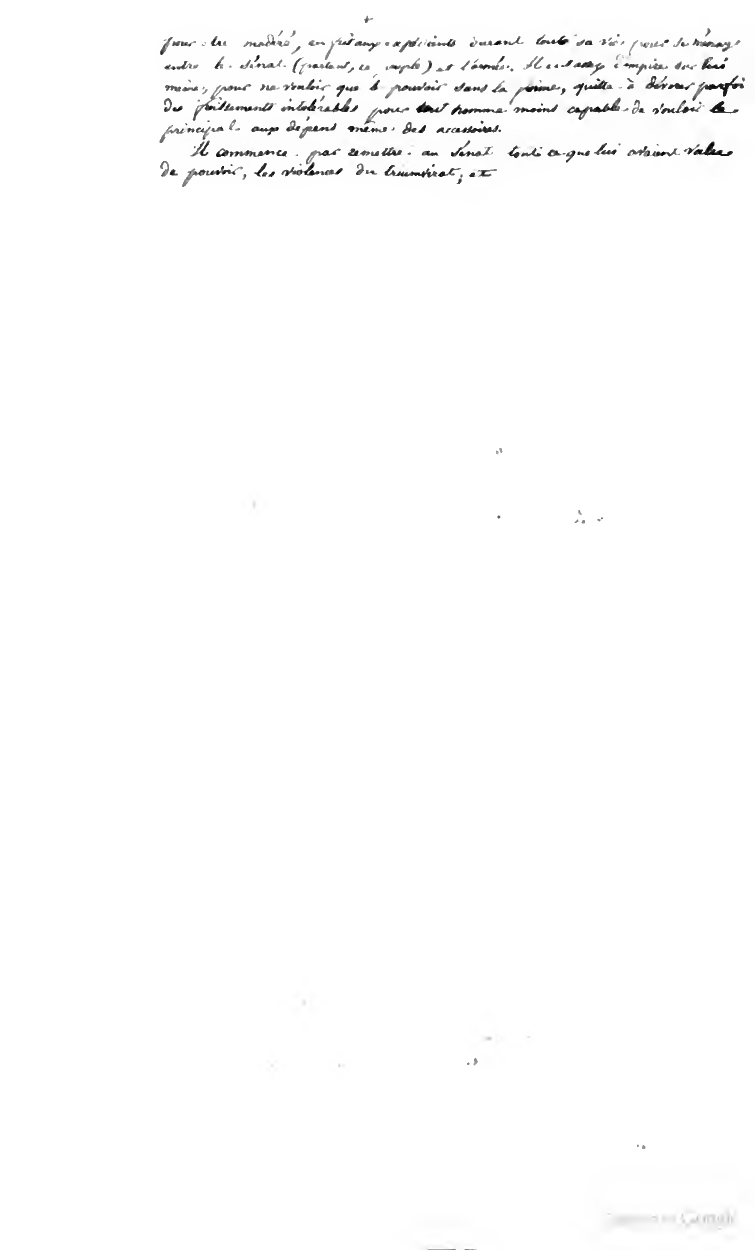 pour être modéré, en fut aux expédients durant toute sa vie pour se ménager
entre le Sénat (partant, le peuple) et l'armée. Il eut assez d'empire sur lui
même, pour ne vouloir que le pouvoir sans la forme, quitte à dévorer parfois
des froissements intolérables pour tout homme moins capable de vouloir le
principal aux dépens même des accessoires.
Il commence par remettre au Sénat tout ce que lui avaient valu
de pouvoir, les violences du triumvirat; et
Google